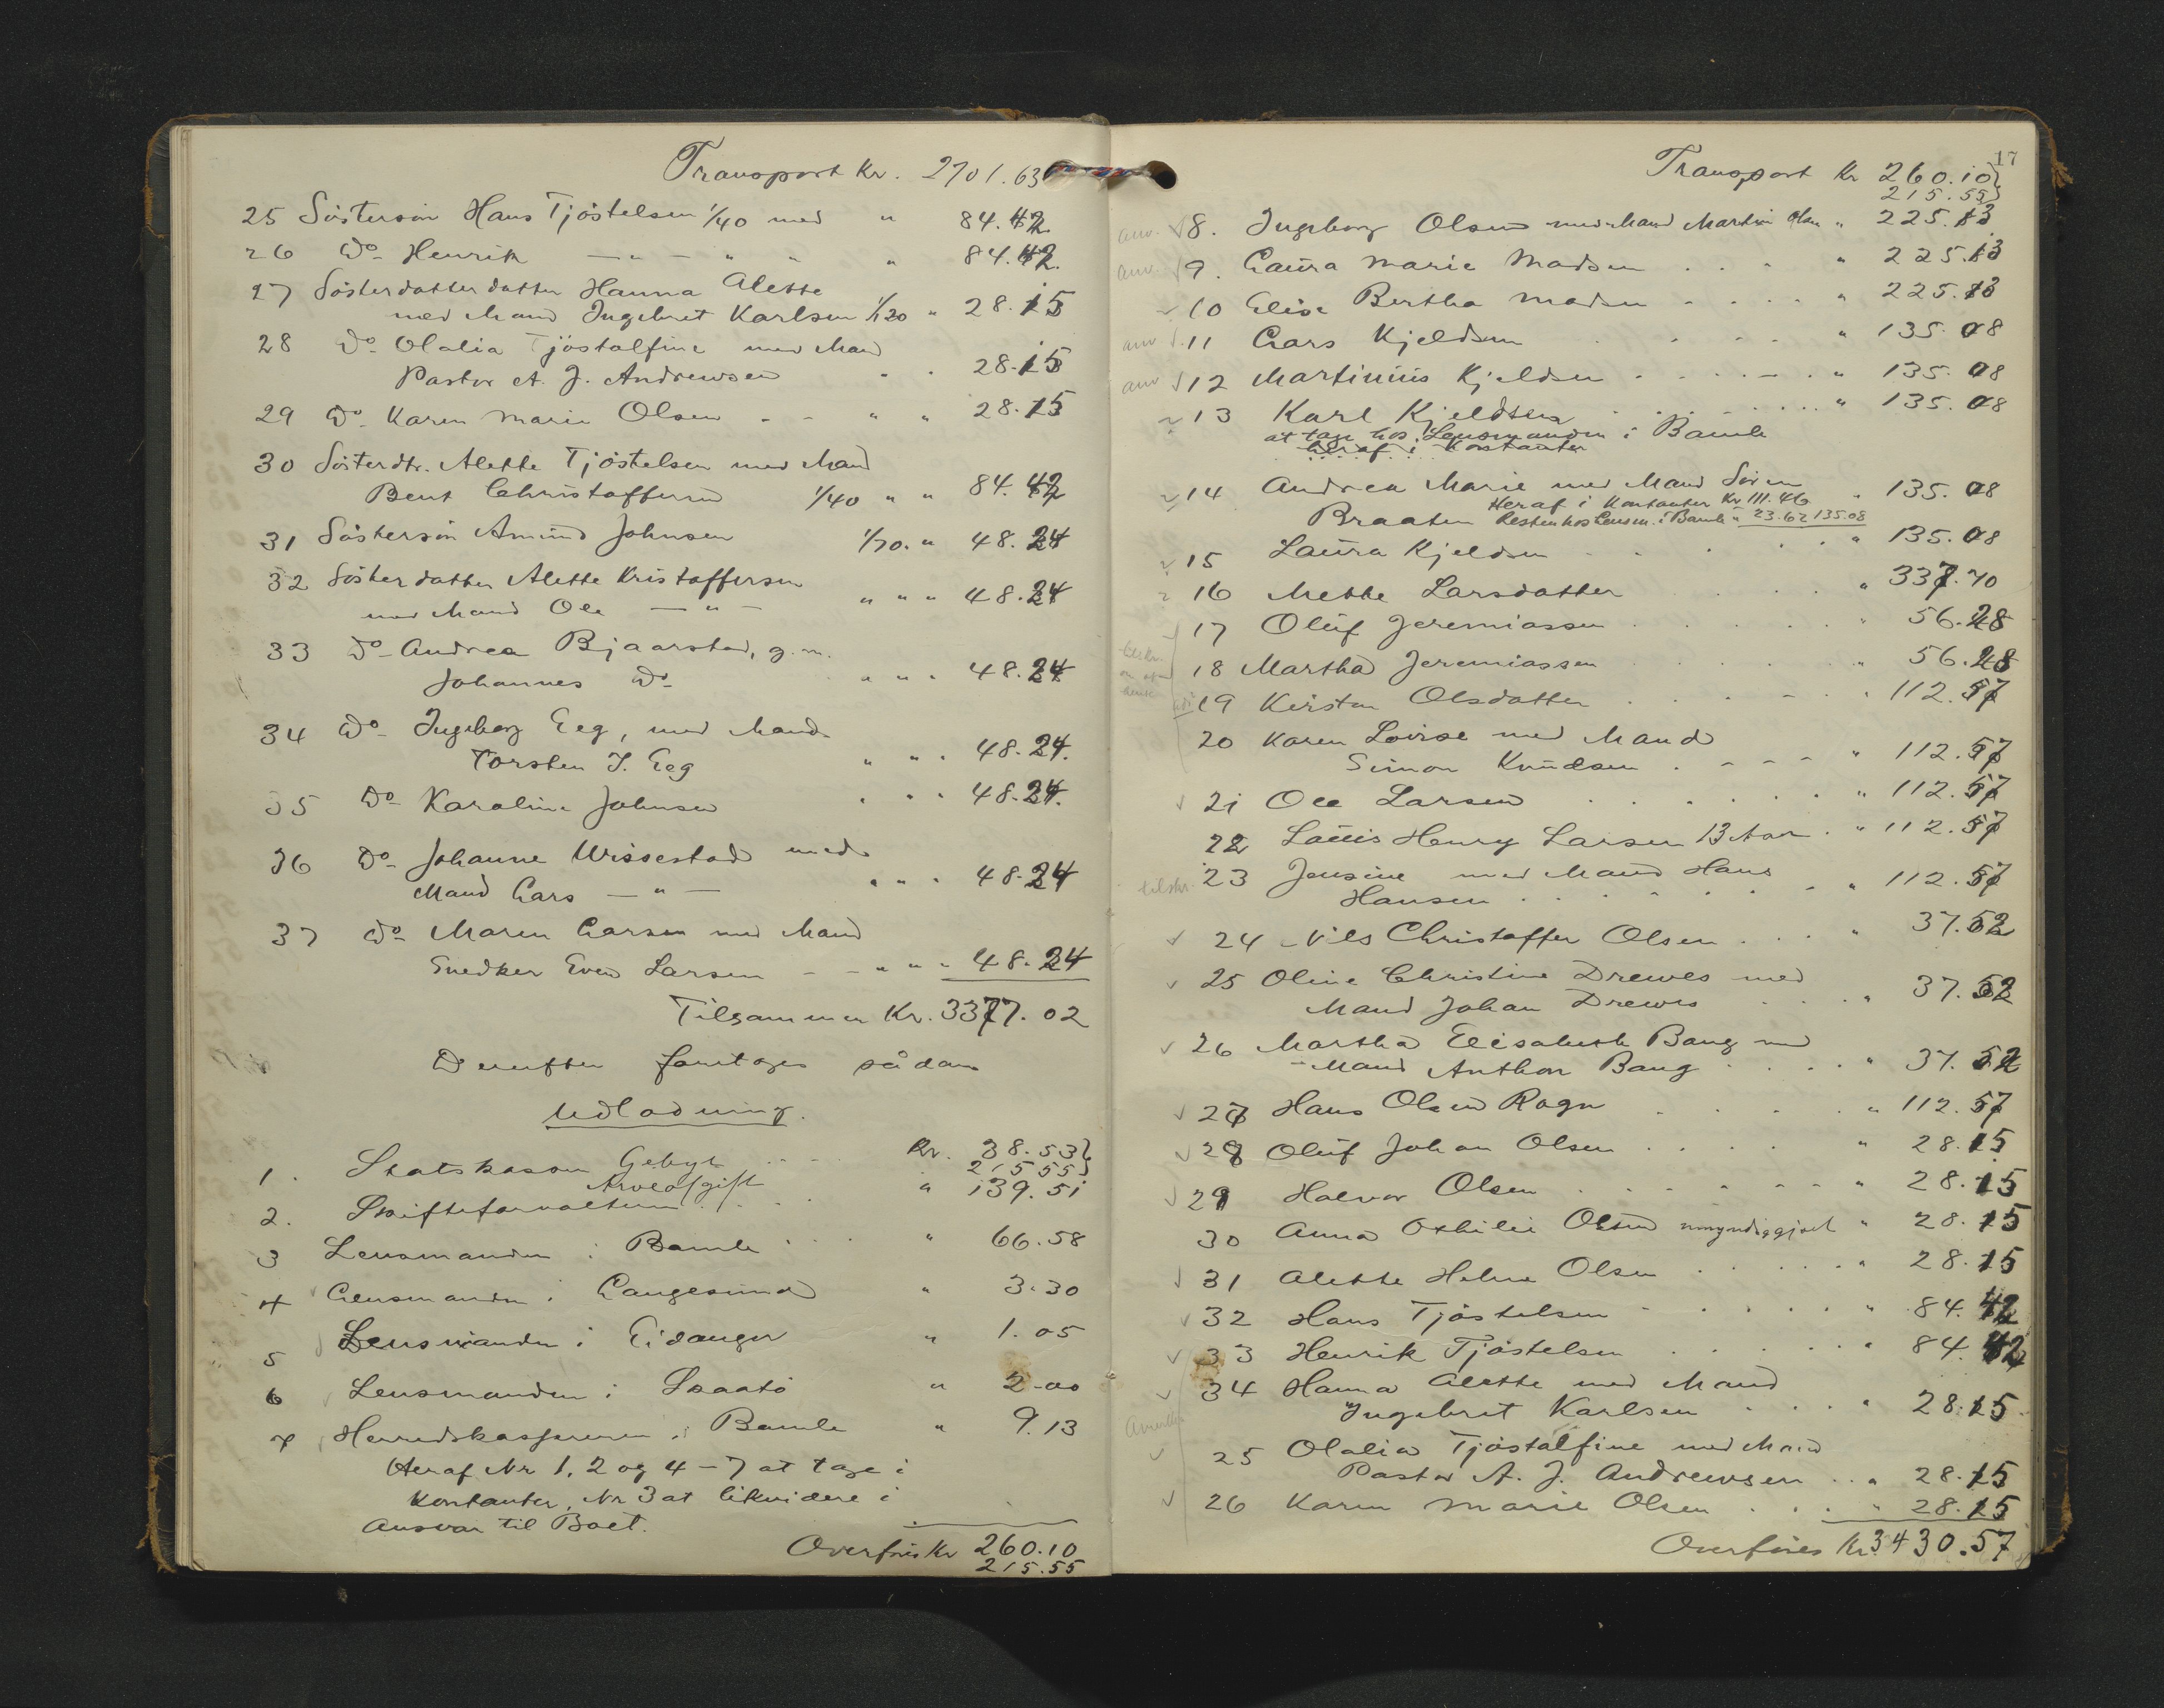 Transport Kr. 2701.63
25 Søstersøn Hans Tjøstelsen 1/40 med " 84.42
26 Do Henrik — " — " " " 84.42
27 Søsterdatter datter Hanna Alette
med Mand Ingebret Karlsen 1/120 " 28.15
28 Do Olalia Tjøstolfine med Mand
Pastor A. J. Andrewsen " " 28.15
29 Do Karen Marie Olsen - - " " 28.15
30 Søsterdtr. Alette Tjøstelsen med Mand
Bent Christoffersen 1/40 " " 84.42
31 Søstersøn Amund Johnsen 1/70. " 48.24
32 Søsterdatter Alette Kristoffersen
med Mand Ole — " — " " " 48.24
33 Do Andrea Bjaarstad, g.m.
Johannes Do " " " 48.24
34 Do Ingeborg Eeg, med Mand
Torsten J. Eeg " " " 48.24.
35 Do Karoline Johnsen " " " 48.24.
36 Do Johanne Urssestad med
Mand Lars — " — " " " 48.24
37 Do Maren Larsen med Mand
Snedker Even Larsen - - " " " 48.24
Tilsammen Kr. 3377.02
Derefter foretoges sådan
Udlodning.
1. Statskassen Gebyr Kr. 38.53}
Arveafgift 215 55}
2. Skifteforvalteren " 139.51
3 Lensmanden i Bamle " 66.58
4 Lensmanden i Langesund " 3.30
5 Lensmanden i Eidanger " 1.05
6 Lensmanden i Skaatø " 2-00
7 Herredskassereren i Bamle " 9.13
Heraf Nr 1, 2 og 4 – 7 at tage i
Kontanter, Nr 3 at likvidere i
Ansvar til Boet.
Overføres Kr 260.10
215.55
17
Transport Kr 260.10}
215.55}
anv. 8. Ingeborg Olsen med Mand Martin Olsen " 225.13
anv. 9. Laura Marie Madsen " 225.13
10 Elise Bertha Madsen " 225.13
anv 11 Lars Kjeldsen " 135.08
anv 12 Martinius Kjeldsen " 135.08
13 Karl Kjeldsen " 135.08
at tage hos Lensmanden i Bamle
heraf i Kontanter
14 Andrea Marie med Mand Søren " 135.08
Heraf i Kontanter Kr 111.46
Braaten Resten hos Lensm. i Bamle " 23.62 135.08
15 Laura Kjeldsen " 135.08
16 Mette Larsdatter " 337.70
17 Oluf Jeremiassen " 56.28
18 Martha Jeremiassen " 56.28
19 Kirsten Olsdatter " 112.57
20 Karen Lovise med Mand
Simon Knudsen " 112.57
21 Ole Larsen " 112.57
22 Louis Henry Larsen 13 Aar " 112.57
tilskr. 23 Jensine med Mand Hans
Hansen " 112.57
24 Nils Christoffer Olsen " 37.52
25 Oline Christine Drewes med
Mand Johan Drewes " 37.52
26 Martha Elisabeth Bang med
Mand Anthon Bang " 37.52
27 Hans Olsen Rogn " 112.57
28 Oluf Johan Olsen " 28.15
29 Halvor Olsen " 28.15
30 Anna Othilie Olsen umyndiggjort " 28.15
31 Alette Helene Olsen " 28.15
32 Hans Tjøstelsen " 84.42
33 Henrik Tjøstelsen " 84.42
34 Hanna Alette med Mand
Ingebret Karlsen " 28.15
25 Olalia Tjøstolfine med Mand
Pastor A. J. Andrewsen " 28.15
26 Karen Marie Olsen " 28.15
Overføres Kr 3430.57